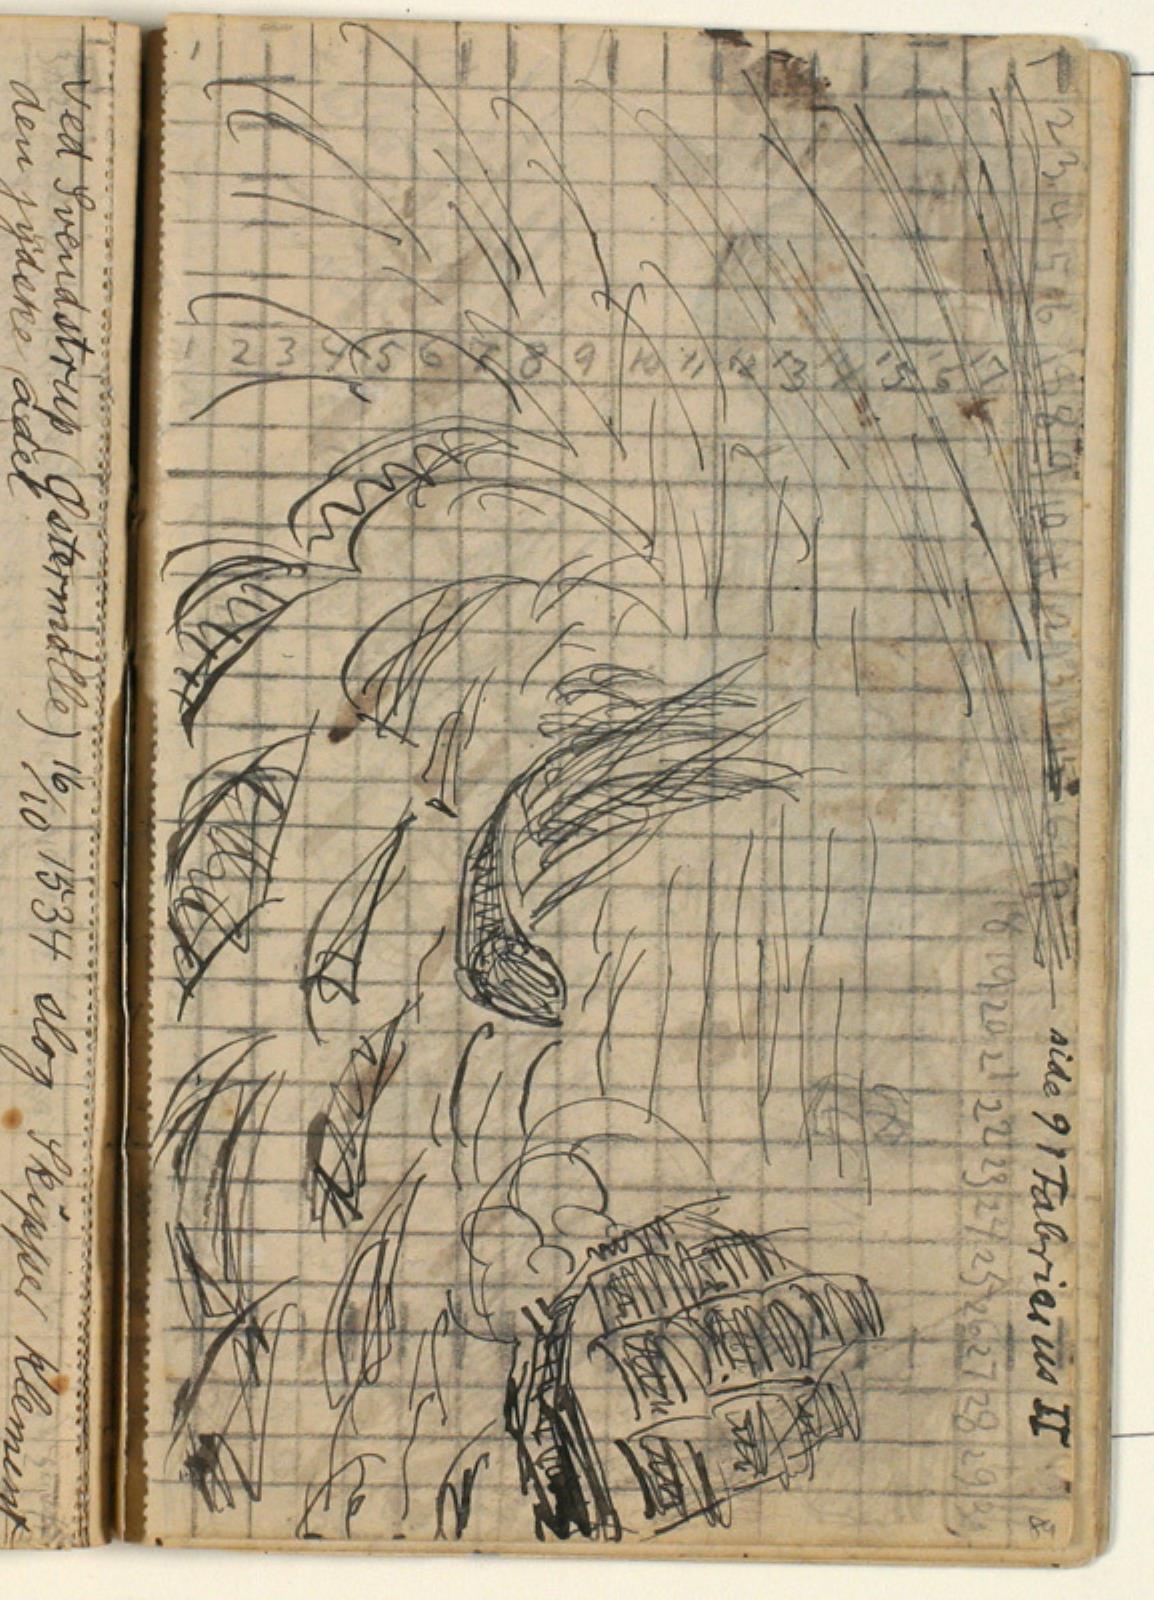 Ved Svendstrup (Østermølle) 16/10 1534 slog skipper Klement
den jydske adel
side 91 Fabricius II
1 2 3 4 5 6 7 8 9 10 11 12 13 14 15 16 17
1 2 3 4 5 6 7 8 9 10 11 12 13 14 15 16 17
18 19 20 21 22 23 24 25 26 27 28 29